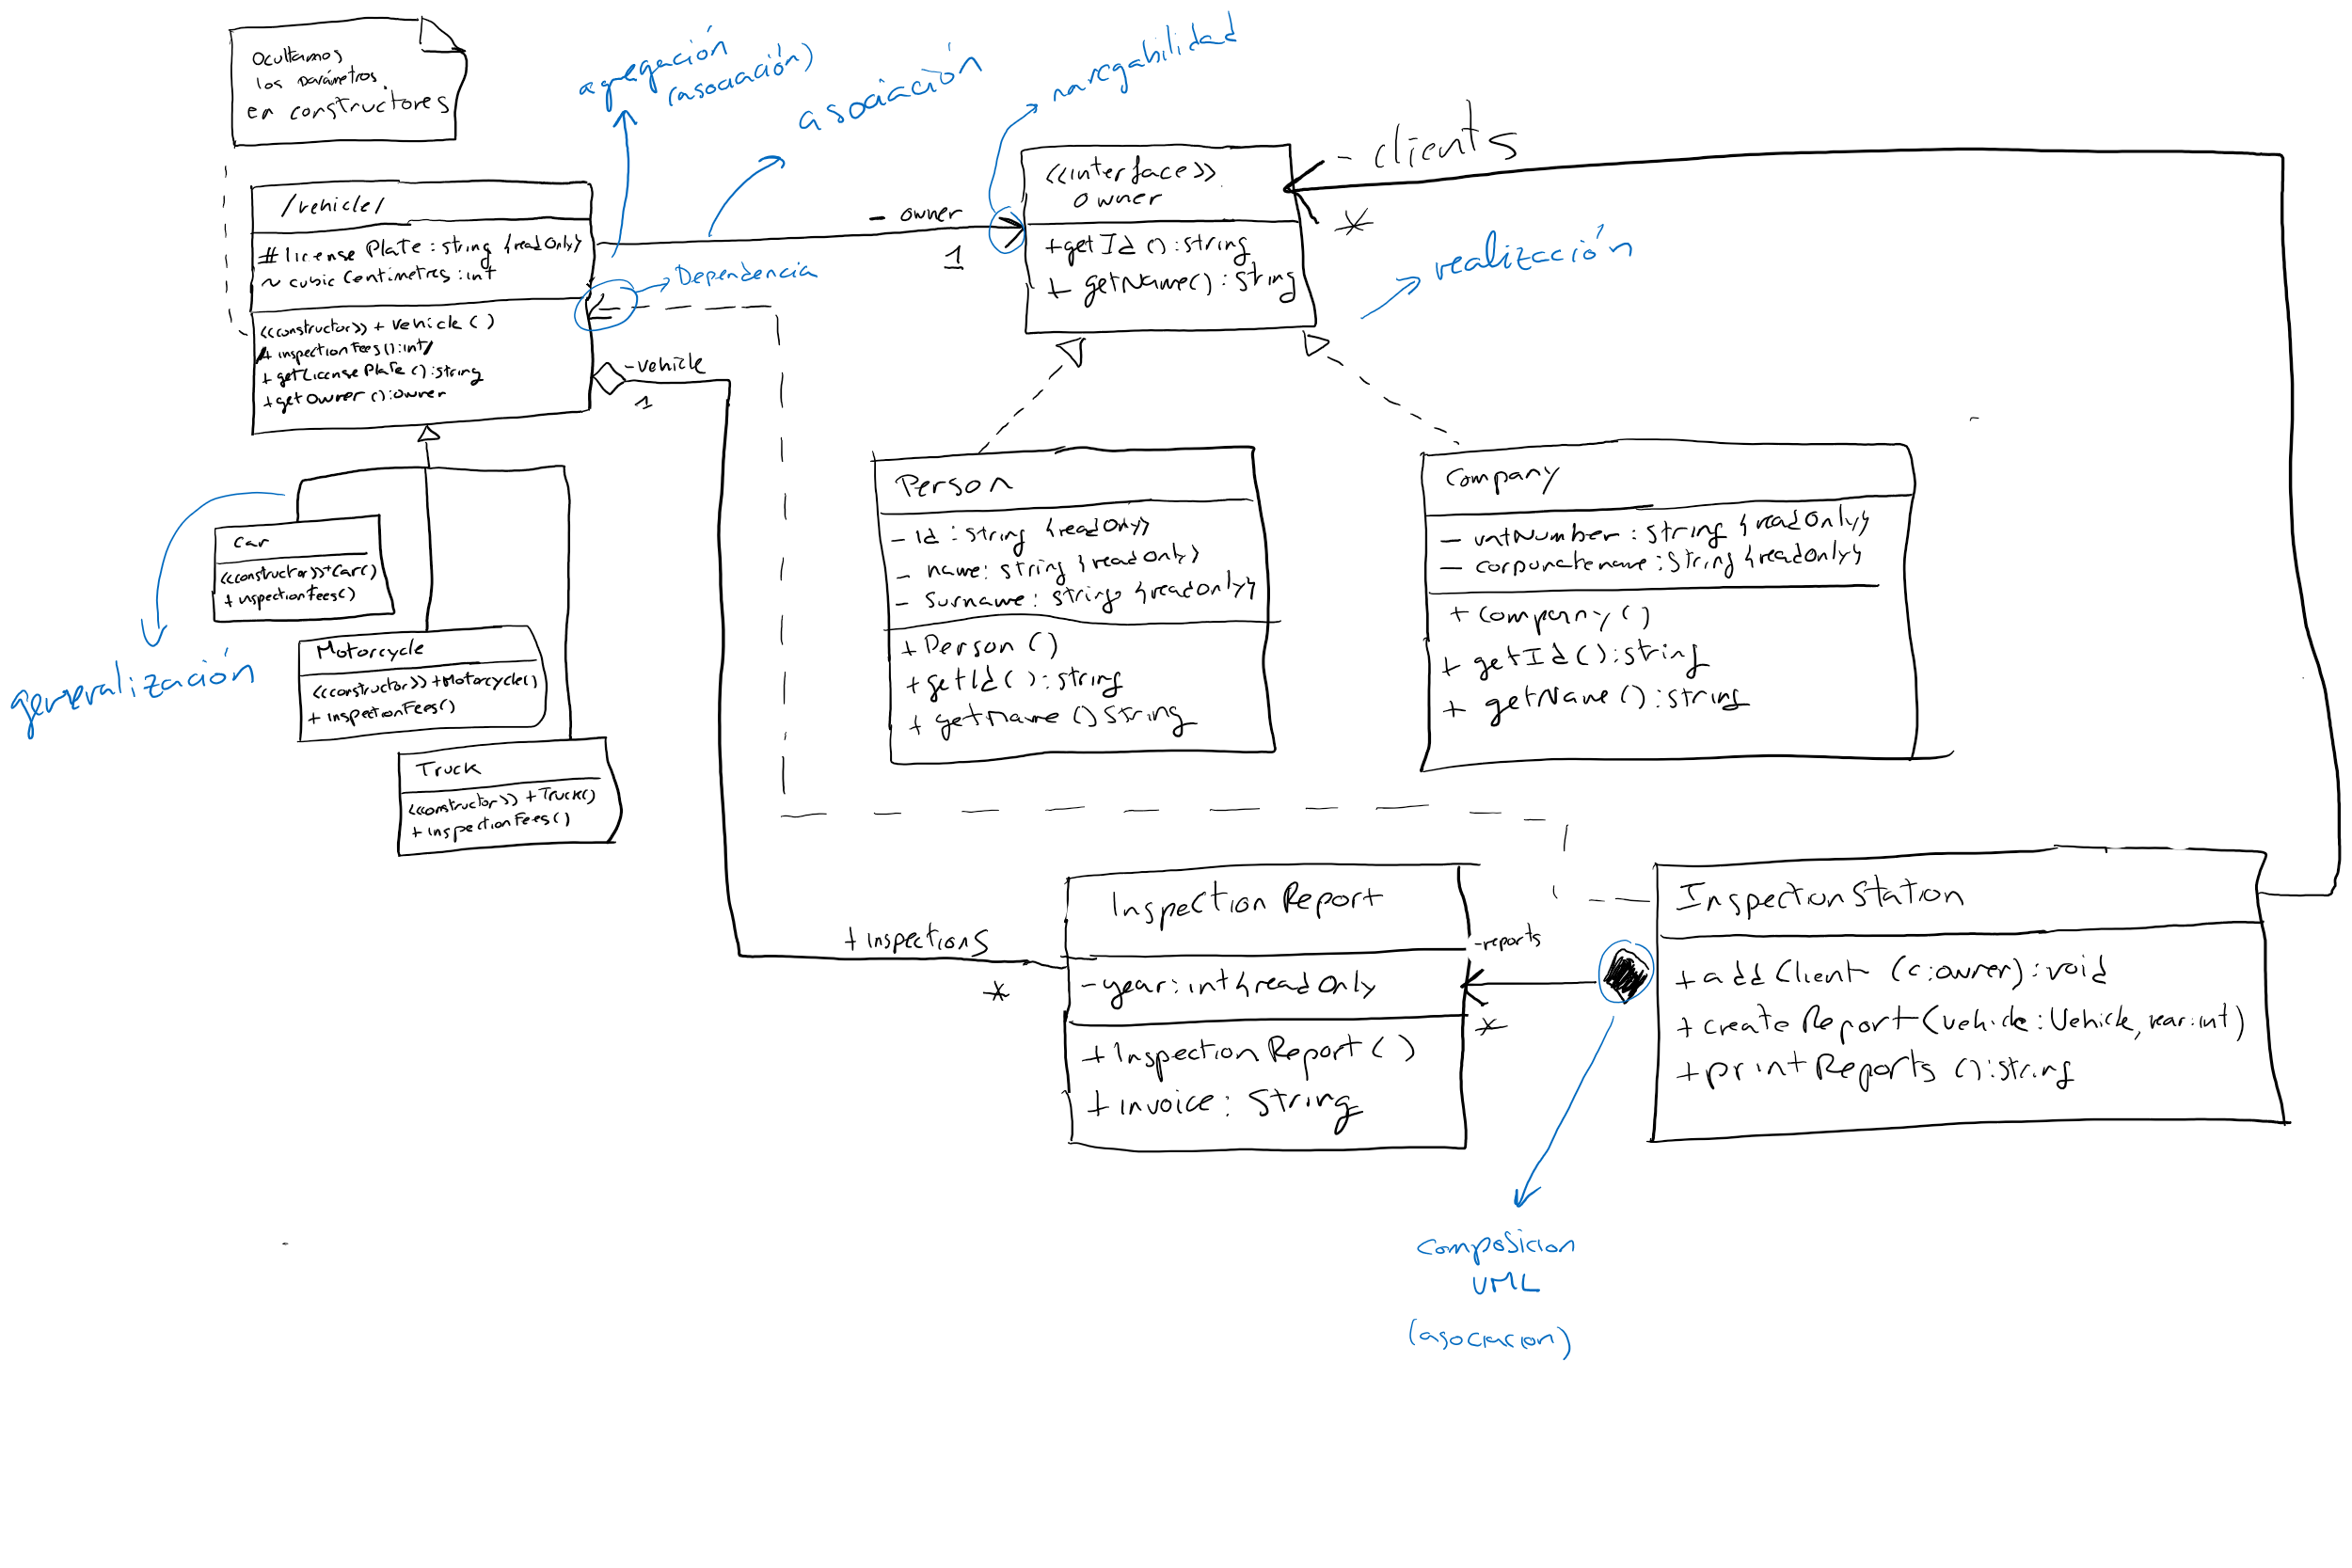 Ocultamos
los parámetros
en constructores
agregación
(asociación)
asociación
navegabilidad
/vehicle/
# license Plate : string {readOnly}
~ cubic Centimetres : int
<<constructor>> + Vehicle ( )
+ inspectionFees () : int/
+ getLicense Plate () : string
+ getOwner () : owner
- owner
1
Dependencia
<<interface>>
owner
+ get Id () : string
+ getName() : string
- clients
*
realización
- vehicle
1
generalización
Car
<<constructor>>+Car()
+ inspectionFees()
Motorcycle
<<constructor>> +Motorcycle()
+ InspectionFees()
Truck
<<constructor>> + Truck()
+ InspectionFees()
Person
- Id : string {readOnly}
- name: string {readOnly}
- surname: string {readonly}
+ Person ()
+ getId() : string
+ getName () String
Company
- vatNumber : string {readOnly}
- corporatename : String {readonly}
+ Company ()
+ getId () : string
+ getName () : string
+ inspections
*
Inspection Report
- year : int {read Only
+ Inspection Report ( )
+ invoice : String
- reports
*
InspectionStation
+ add Client (c:owner) : void
+ create Report (vehicle : Vehicle, year:int)
+ printReports () : string
Composicion
UML
(asociacion)